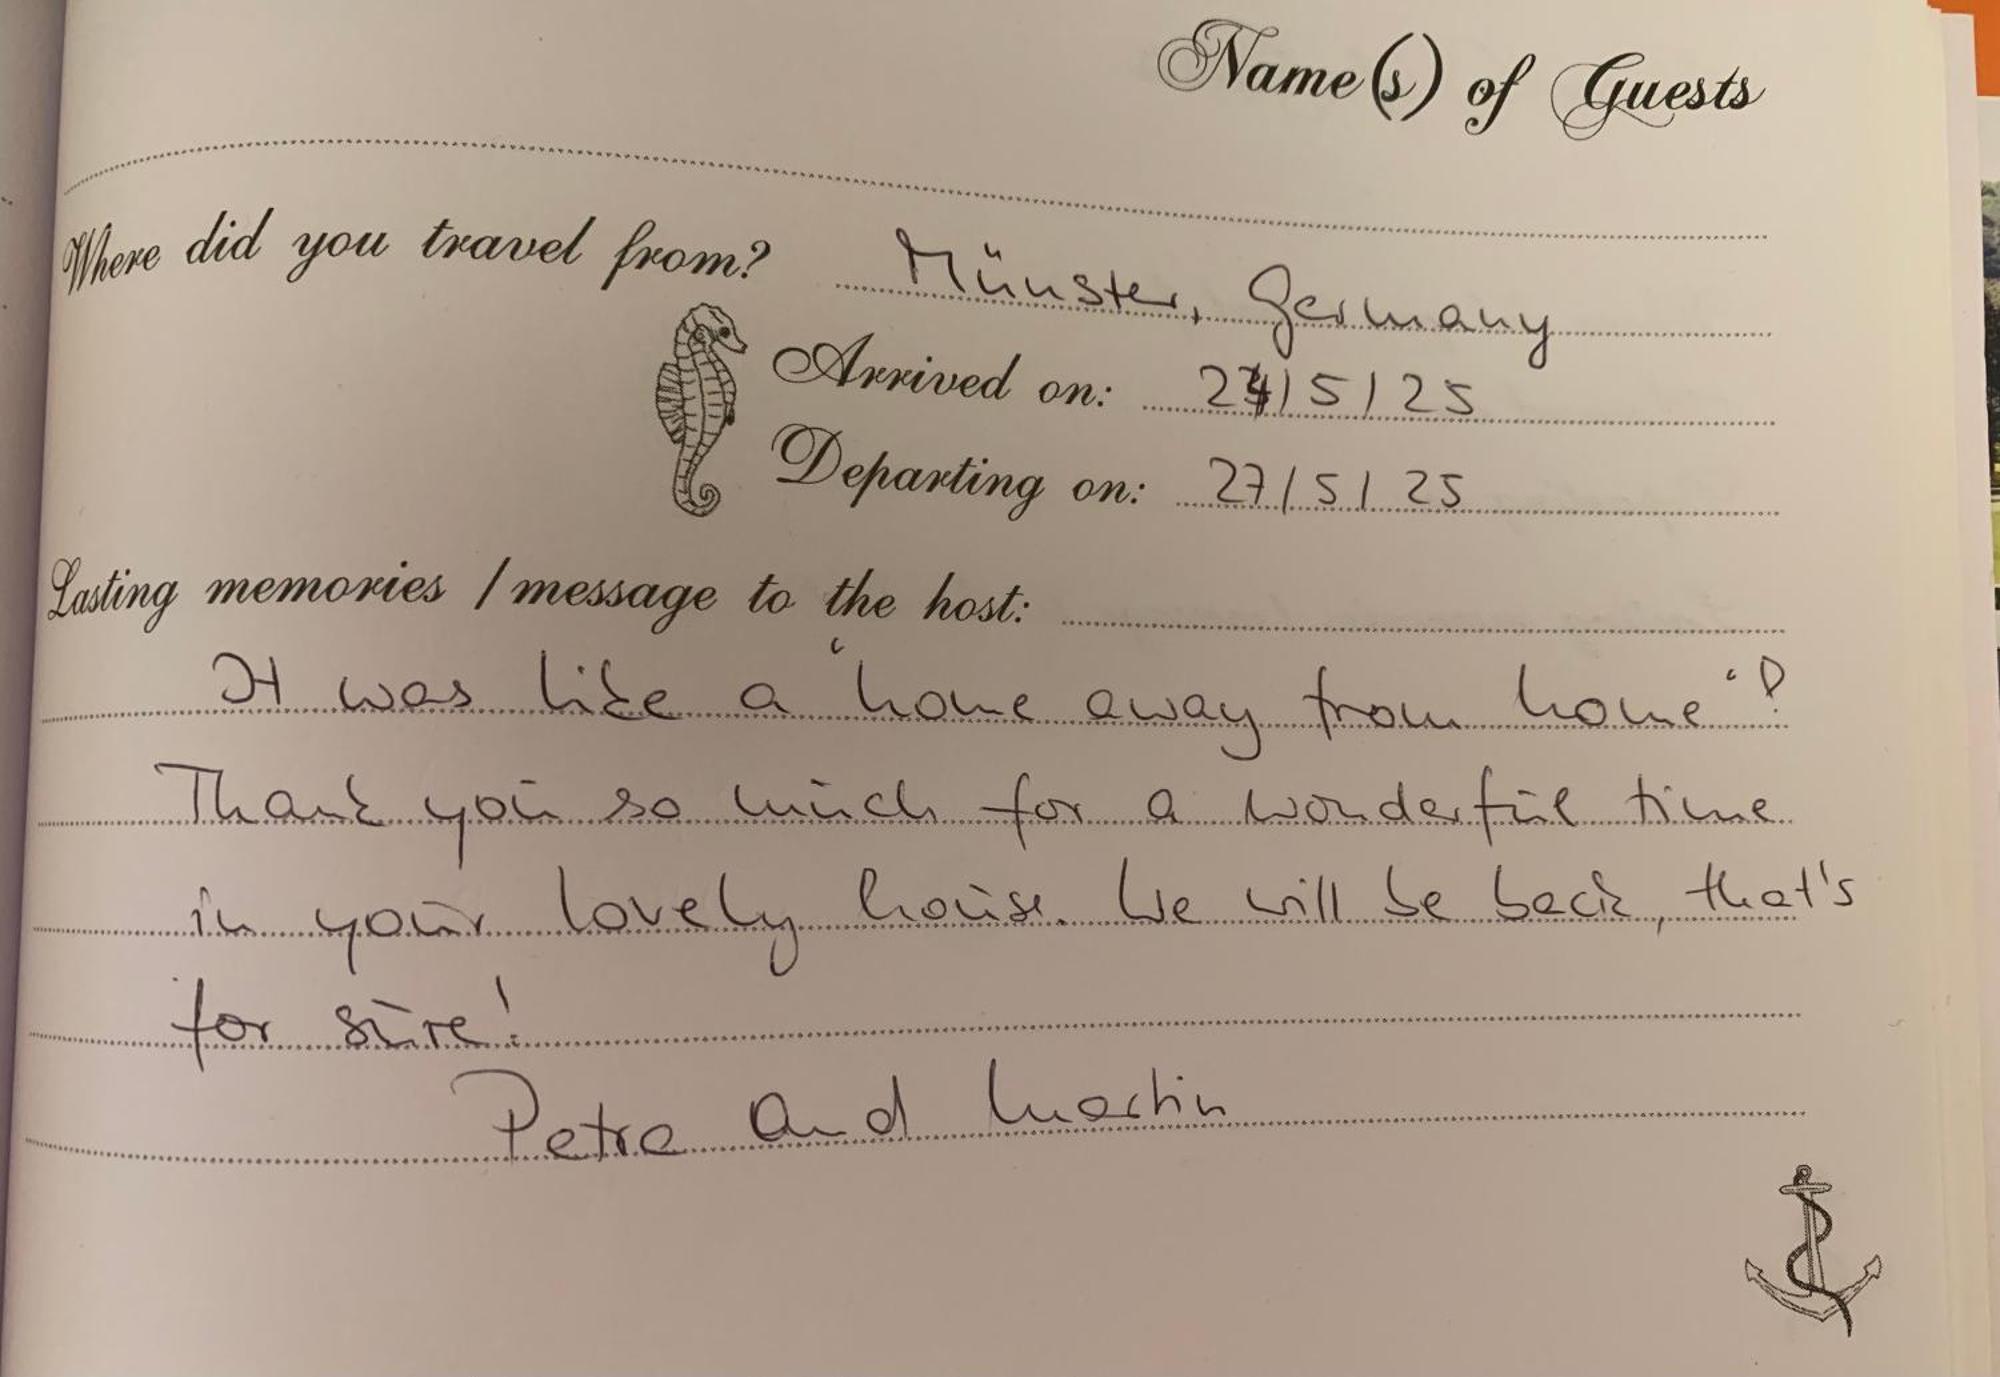 Name(s) of Guests
Where did you travel from? Münster, Germany
Arrived on: 24/5/25
Departing on: 27/5/25
Lasting memories / message to the host:
It was like a "home away from home"!
Thank you so much for a wonderful time
in your lovely house. We will be back, that's
for sure!
Petra and Martin